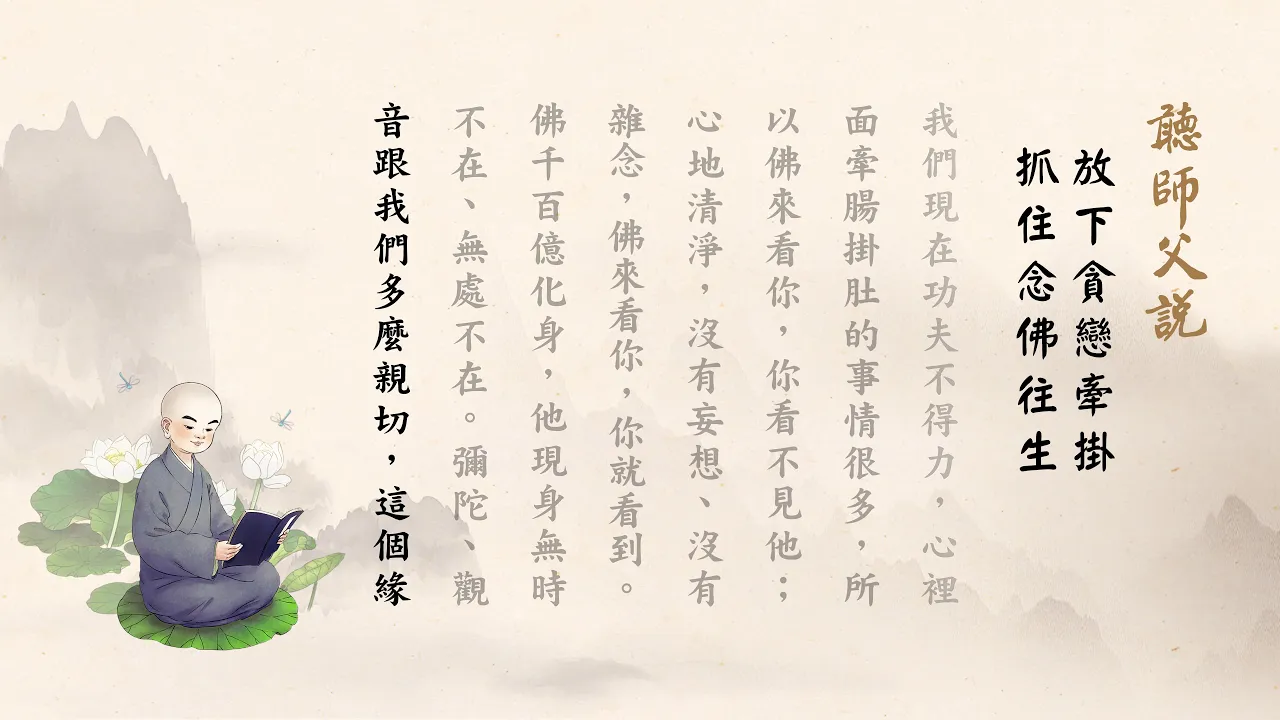 聽師父説
放下貪戀牽掛
抓住念佛往生
我們現在功夫不得力，心裡
面牽腸掛肚的事情很多，所
以佛來看你，你看不見他；
心地清淨，沒有妄想、沒有
雜念，佛來看你，你就看到。
佛千百億化身，他現身無時
不在、無處不在。彌陀、觀
音跟我們多麼親切，這個緣